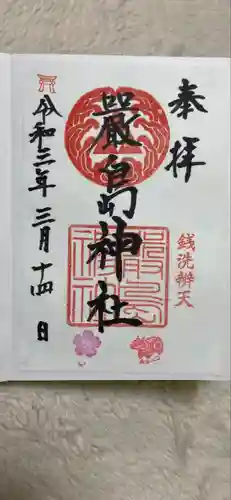 奉拝
銭洗辨天
嚴島神社
嚴島神社
令和三年三月十四日